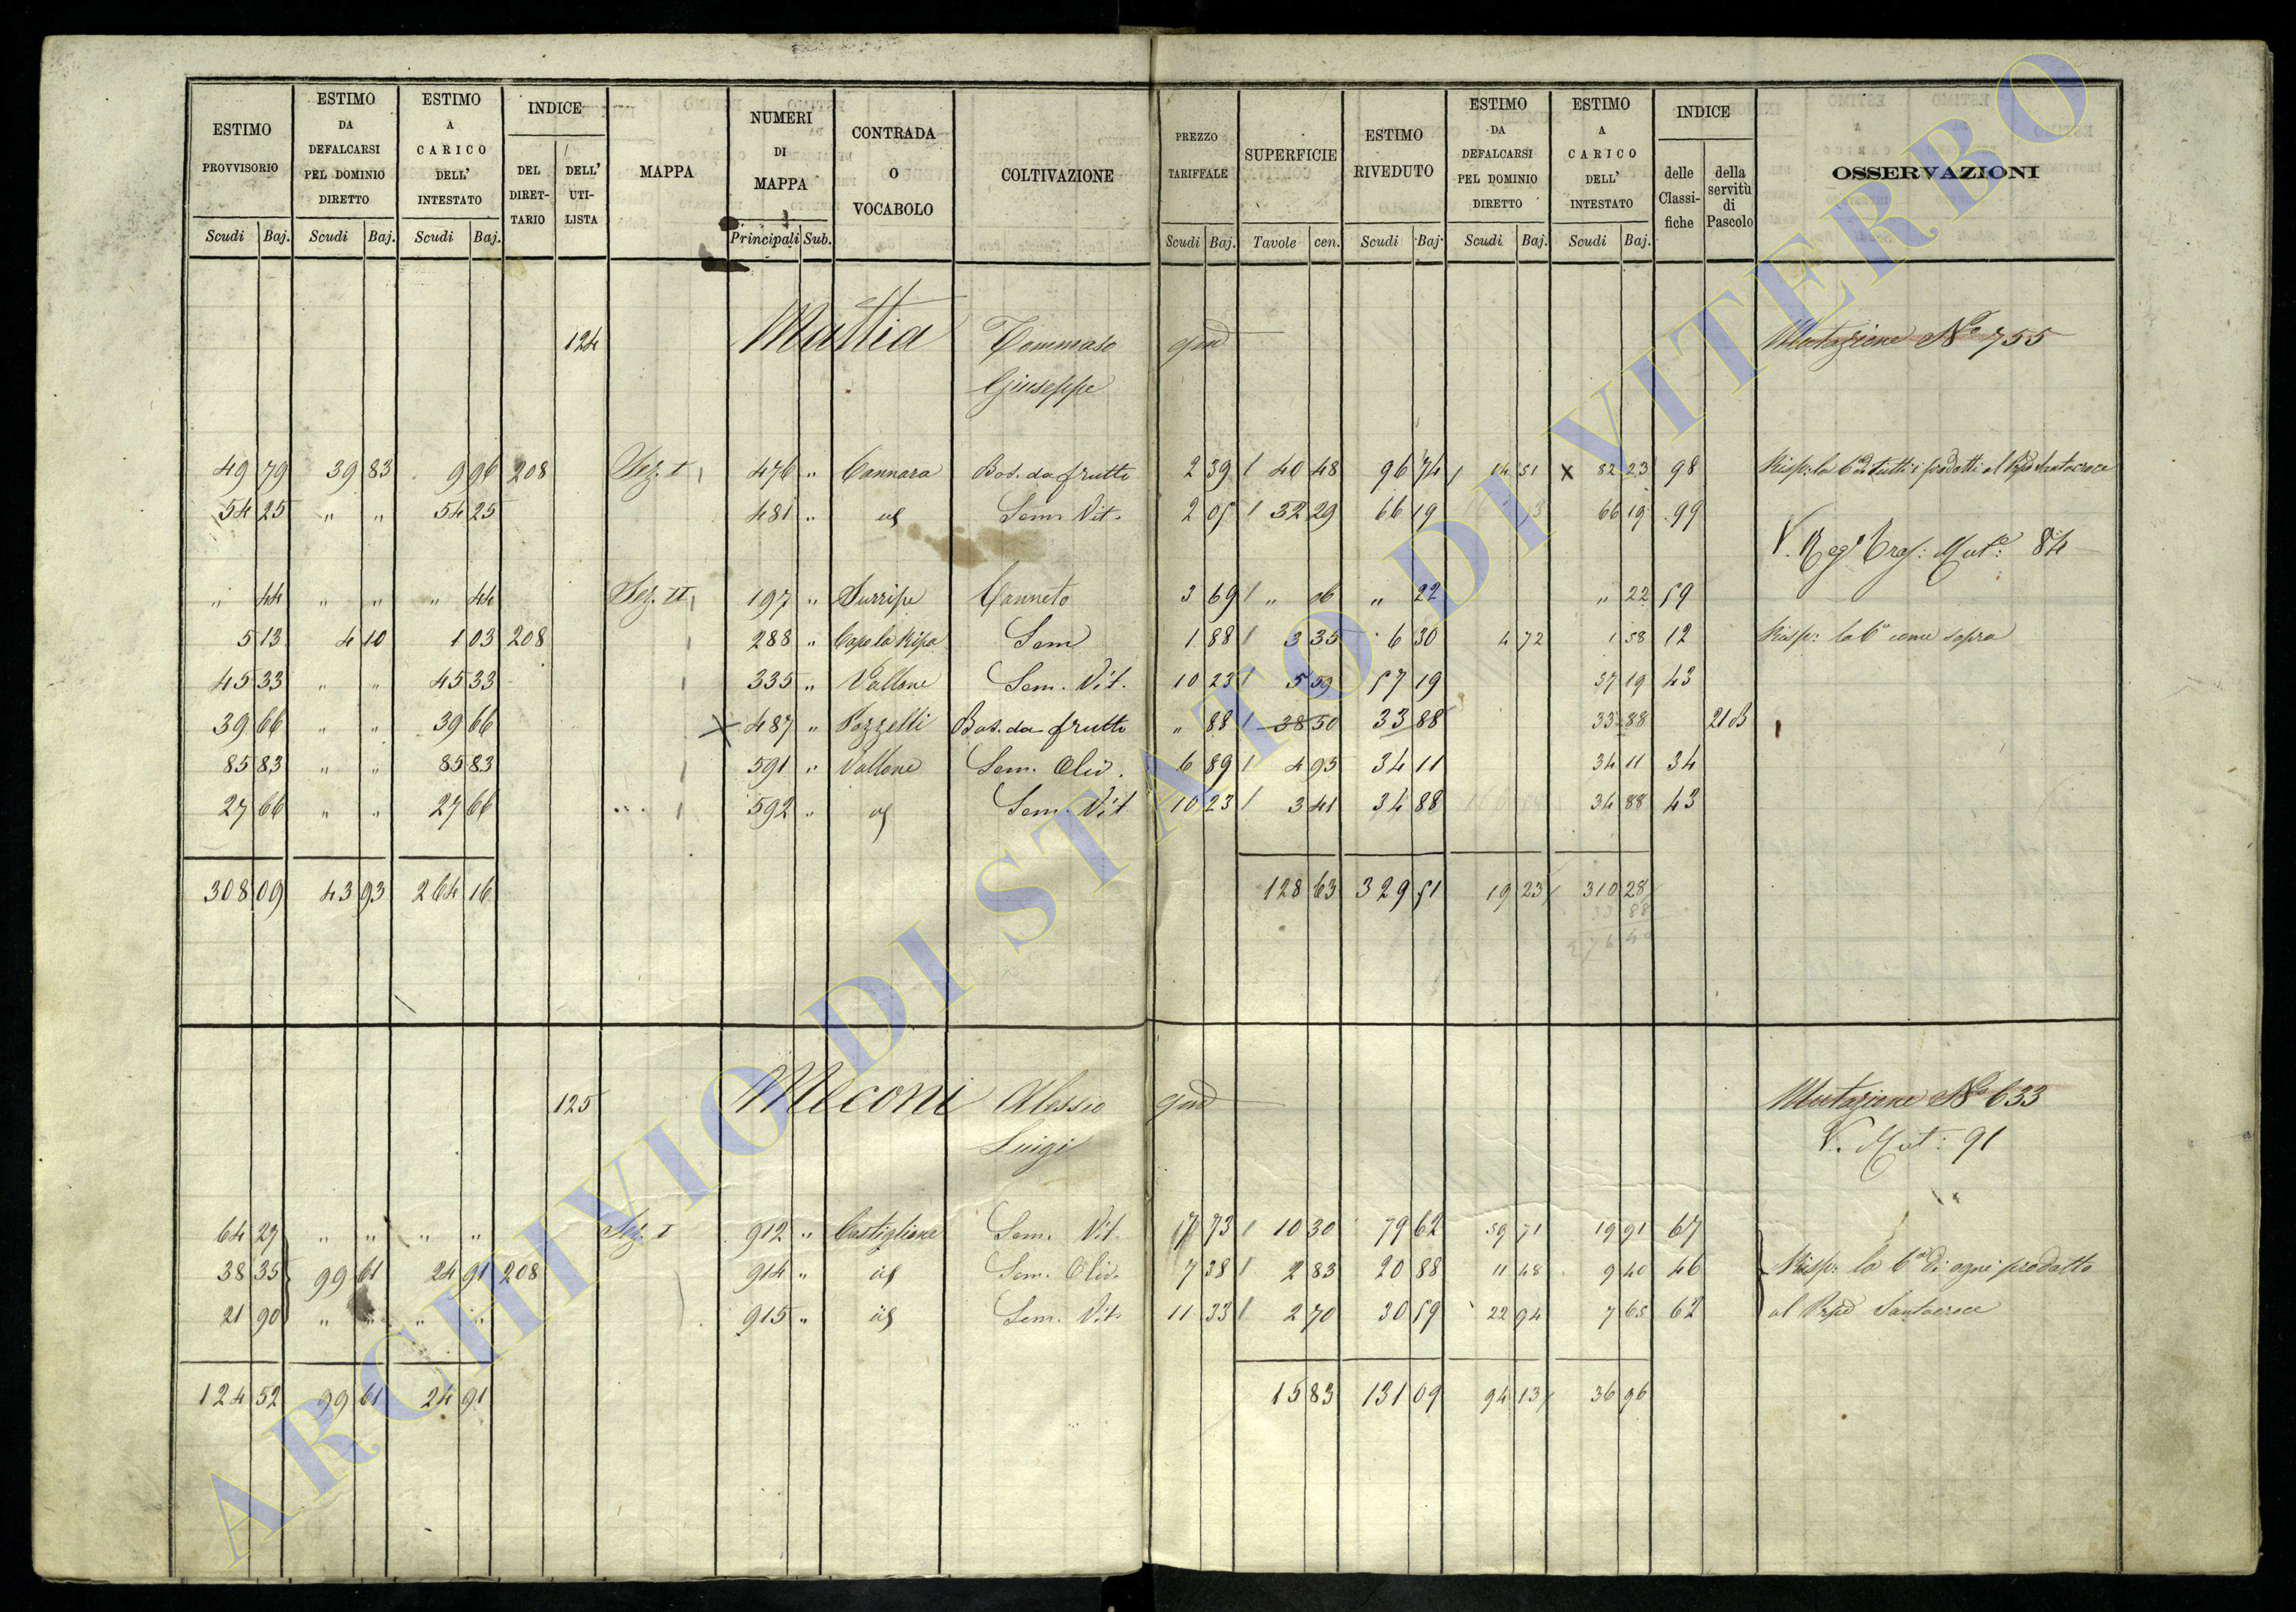 ESTIMO PROVVISORIO | ESTIMO DA DEFALCARSI PEL DOMINIO DIRETTO | ESTIMO A CARICO DELL' INTESTATO | INDICE DEL DIRETTARIO | DELL' UTILISTA | MAPPA | NUMERI DI MAPPA | CONTRADA O VOCABOLO | COLTIVAZIONE | PREZZO TARIFFALE | SUPERFICIE | ESTIMO RIVEDUTO | ESTIMO DA DEFALCARSI PEL DOMINIO DIRETTO | ESTIMO A CARICO DELL' INTESTATO | INDICE delle Classifiche | della servitù di Pascolo | OSSERVAZIONI
Scudi Baj. | Scudi Baj. | Scudi Baj. | Principali Sub. | Scudi Baj. | Tavole cen. | Scudi Baj. | Scudi Baj. | Scudi Baj.
124 Mattia Tommaso qm Mutazione No 755
Giuseppe
49 79 | 39 83 | 9 96 | 208 | Sez. I | 476 " | Cannara | Bos. da frutto | 2 39 | 40 48 | 96 74 | 14 51 | X 82 23 | 98 | Risp: la di tutti i prodotti al Santacroce
54 25 | " " | 54 25 | 481 " | id | Sem. Vit. | 2 05 | 32 29 | 66 19 | 66 19 | 99
V. Reg. Mut.e: 84
" 44 | " " | " 44 | Sez. II | 197 " | Surripe | Canneto | 3 69 | " 06 | " 22 | " 22 | 59
5 13 | 4 10 | 1 03 | 208 | 288 " | Capo la Ripa | Sem | 1 88 | 3 35 | 6 30 | 4 72 | 1 58 | 12 | Risp: la 6a come sopra
45 33 | " " | 45 33 | 335 " | Vallone | Sem. Vit. | 10 23 | 5 59 | 57 19 | 57 19 | 43
39 66 | " " | 39 66 | X 487 " | Pozzelli | Bos. da frutto | " 88 | 38 50 | 33 88 | 33 88 | 21 B
85 83 | " " | 85 83 | 591 " | Vallone | Sem. Oliv. | 6 89 | 4 95 | 34 11 | 34 11 | 34
27 66 | " " | 27 66 | 592 " | id | Sem. Vit | 10 23 | 3 41 | 34 88 | 34 88 | 43
308 09 | 43 93 | 264 16 | 128 63 | 329 51 | 19 23 | 310 28
33 88
276 40
125 Meconi Alessio qm Mutazione No 633
Luigi V. Mut: 91
64 27 | " " | " " | Sez. I | 912 " | Castiglione | Sem. Vit. | 7 73 | 10 30 | 79 62 | 59 71 | 19 91 | 67
38 35 | 99 61 | 24 91 | 208 | 914 " | id | Sem. Oliv. | 7 38 | 2 83 | 20 88 | 11 48 | 9 40 | 46 | Risp: la 6a di ogni prodotto
21 90 | " " | " " | 915 " | id | Sem. Vit. | 11 33 | 2 70 | 30 59 | 22 94 | 7 65 | 62 | al Santacroce
124 52 | 99 61 | 24 91 | 15 83 | 131 09 | 94 13 | 36 96
ARCHIVIO DI STATO DI VITERBO